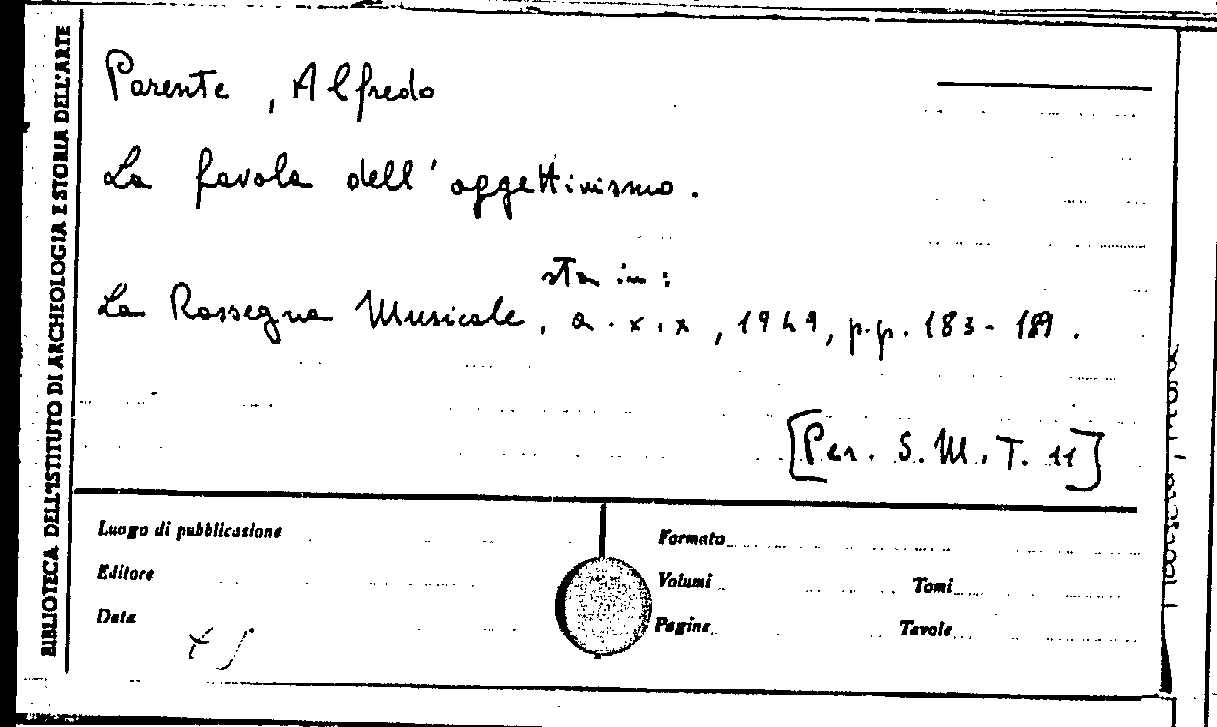 BIBLIOTECA DELL'ISTITUTO DI ARCHEOLOGIA E STORIA DELL'ARTE
Parente, Alfredo
La favola dell'oggettivismo.
sta in:
La Rassegna Musicale, a. XIX, 1949, p.p. 183-189.
[Per. S.M.T. 11]
Luogo di pubblicazione
Editore
Data
Formato
Volumi Tomi
Pagine Tavole